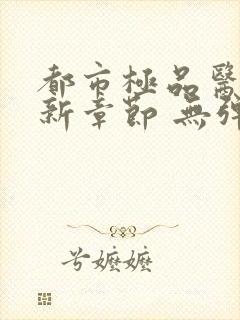 都市極品醫
新章節 無彈
兮嬤嬤